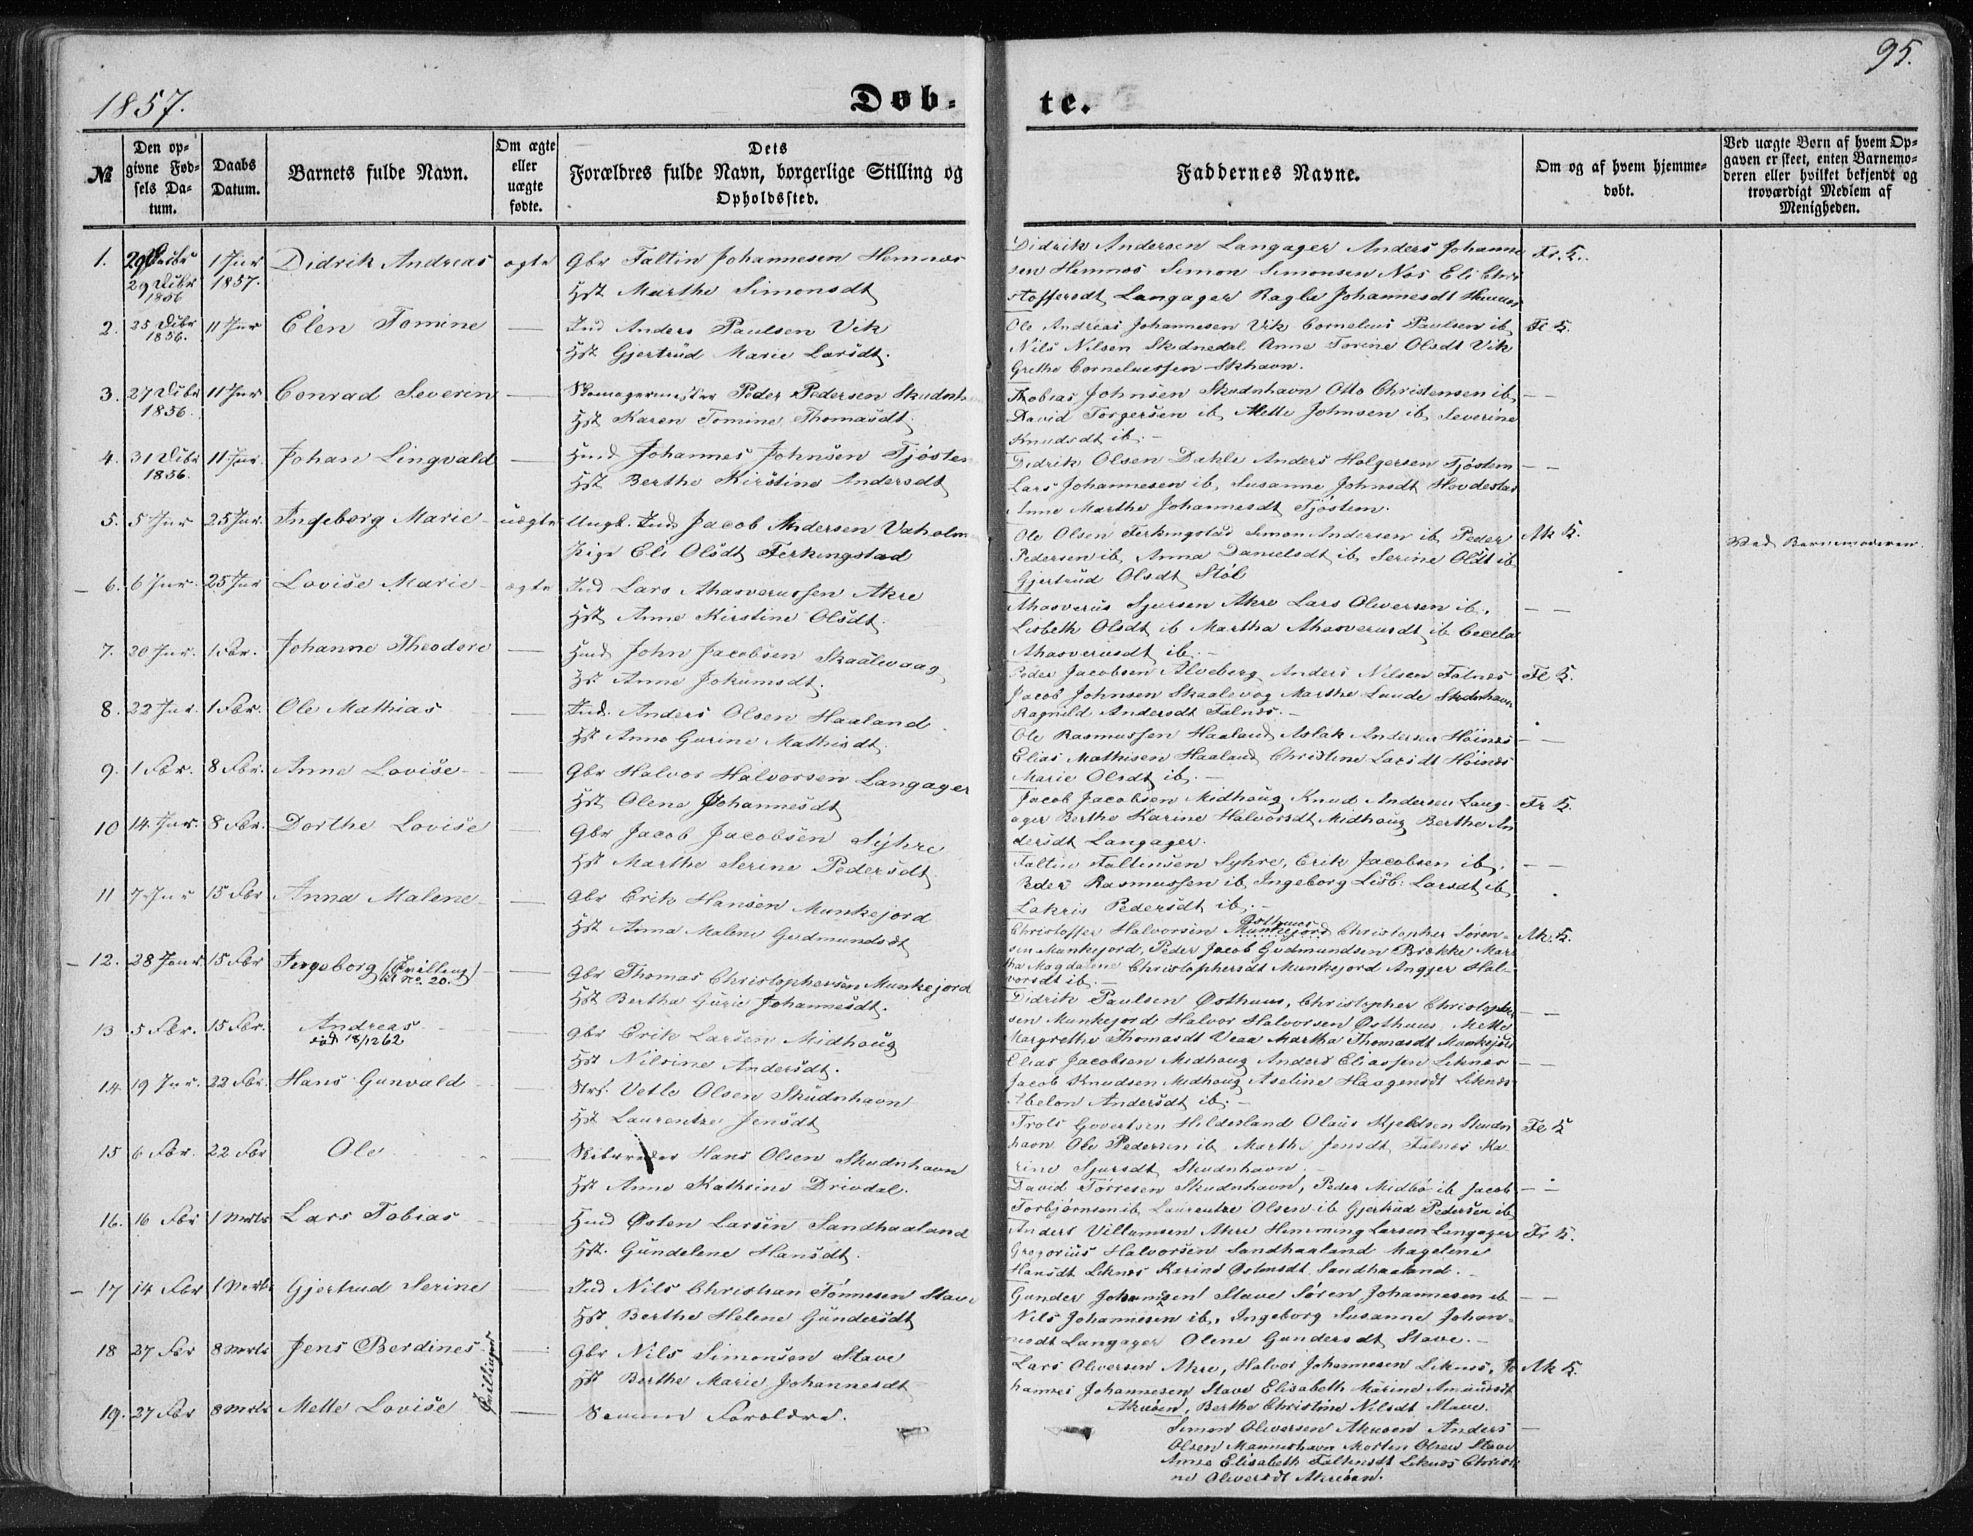 95.
1857.
Døb-
te.
№
Den op-
givne Fød-
sels Da-
tum.
Daabs
Datum.
Barnets fulde Navn.
Om ægte
eller
uægte
fødte.
Dets
Forældres fulde Navn, borgerlige Stilling og
Opholdssted.
Faddernes Navne.
Om og af hvem hjemme-
døbt.
Ved uægte Børn af hvem Op-
gaven er skeet, enten Barnemo-
deren eller hvilket bekjendt og
troværdigt Medlem af
Menigheden.
1. 29 Decbr 1856 1 Jnr 1857. Didrik Andreas ægte Gbr Faltin Johannesen Hemnes
Hst Marthe Simonsdt
Didrik Andersen Langager Anders Johanne
sen Hemnes Simon Simonsen Nes Eli Chri
stoffersdt Langager Ragle Johannesdt
2. 25 Decbr 1856. 11 Jnr Elen Tomine — Ind Anders Paulsen Vik
Hst Gjertrud Marie Larsdt.
Ole Andreas Johannesen Vik Cornelius Paulsen ib
Nils Nilsen Anne Torine Olsdt Vik
Grethe Corneliussen
3. 27 Decbr 1856. 11 Jnr Conrad Severin — Skomagermester Peder Pedersen Skudnh
Hst Karen Tomine Thomasdt.
Tobias Johnsen Skudnhavn Otto Christensen ib — —
David Torgersen ib Mette Johnsen ib Severine
Knudsdt ib. —
4. 31 Decbr 1856. 11 Jnr. Johan Lingvald — Hmd Johannes Johnsen Tjøstem
Hst Berthe Kirstine Andersdt
Didrik Olsen Dahle Anders Holgersen Tjøstem — —
Lars Johannesen ib, Susanne Johnsdt Hovdestad
Anne Marthe Johannesdt Tjøstem.
5. 5 Jnr 25 Jnr. Ingeborg Marie uægte Ungk. Ind Jacob Andersen Vaholm
Pige Eli Olsdt Ferkingstad
Ole Olsen Ferkingstad Simon Andersen ib Peder
Pedersen ib Anna Danielsdt ib Serine Olsdt ib
Gjertrud Olsdt Støl
Ved Barnemoderen.
6. 6 Jnr. 25 Jnr Lovise Marie ægte Ind Lars Ahasverussen Akre
Hst Anne Kirstine Olsdt.
Ahasverus Sjursen Akre Lars Oliversen ib. — —
Lisbeth Olsdt ib Martha Ahasverusdt ib Cecela
Ahasverusdt ib. —
7. 20 Jnr. 1 Fbr. Johanne Theodore — Hmd John Jacobsen Skaalevaag
Hst Anne Jokumsdt.
Peder Jacobsen Alveberg Anders Nilsen Falnes
Jacob Johnsen Skaalevog Marthe Lunde Skudnhavn
Ragnild Andersdt Falnes. —
8. 22 Jnr. 1 Fbr. Ole Mathias — Ind. Anders Olsen Haaland
Hst Anne Gurine Mathisdt.
Ole Rasmussen Haaland Aslak Andersen Høines — —
Elias Mathisen Haaland Christine Larsdt Høines
Marie Olsdt ib. —
9. 1 Fbr. 8 Fbr. Anne Lovise — Gbr Halvor Halvorsen Langager
Hst Olene Johannesdt
Jacob Jacobsen Midhoug Knud Andersen Lang-
ager Berthe Karine Halvorsdt Midhoug Berthe An
dersdt Langager.
10 14 Jnr. 8 Fbr. Dorthe Lovise — Gbr Jacob Jacobsen Syhre
Hst Marthe Serine Pedersdt
Faltin Faltinsen Syhre, Erik Jacobsen ib. — —
Peder Rasmussen ib Ingeborg Lisb: Larsdt ib
Lakris Pedersdt ib. —
11 7 Jnr 15 Fbr Anna Malene — Gbr Erik Hansen Munkejord
Hst Anna Malene Gudmundsdt
Christoffer Halvorsen Østhuus Munkejord Christopher Søren-
sen Munkejord, Peder Jacob Gudmundsen Brekke Mar
tha Magdalene Christophersdt Munkejord Angjer Hal-
vorsdt ib.
12. 28 Janr 15 Fbr Ingeborg (Tvilling til No. 20.) — Gbr Thomas Christophersen Munkejord
Hst Bertha Gurie Johannesdt.
Didrik Paulsen Østhuus, Christopher Christopher — —
sen Munkejord Halvor Halvorsen Østhuus, Mette
Margrethe Thomasdt Veaa Martha Thomasdt Munkejord
13 5 Fbr. 15 Fbr. Andreas
død 18/12 62 — Gbr Erik Larsen Midhoug
Hst Nilsine Andersdt.
Elias Jacobsen Midhoug Anders Eliassen Liknes — —
Jacob Knudsen Midhoug Aseline Haagensdt Liknes
Abelon Andersdt ib. —
14. 19 Jnr. 22 Fbr. Hans Gunvald — Strf. Vetle Olsen Skudnhavn
Hst Laurentze Jensdt
Trols Govertsen Hilderland Olaus Kjeldsen Skudn
havn Ole Pedersen ib Marthe Jensdt Falnes Ka
rine Sjursdt Skudnhavn.
15 6 Fbr. 22 Fbr Ole — Skibsreder Hans Olsen Skudnhavn
Hst Anne Kathrine Drivdal.
David Tørresen Skudnhavn, Peder Midbø ib Jacob — —
Torbjørnsen ib Laurentze Olsen ib Gjertrud Pedersen ib
16. 16 Fbr 1 Marts Lars Tobias — Hmd Østen Larsen Sandhaaland
Hst. Gundelene Hansdt.
Anders Villumsen Akre Hemming Larsen Langager
Gregorius Halvorsen Sandhaaland Magelene
Hansdt Liknes Karine Østensdt Sandhaaland. —
17 14 Fbr 1 Marts Gjertrud Serine — Ind Nils Christian Tønnesen Stave
Hst Berthe Helene Gundersdt
Gunder Johannesen Stave Søren Johannesen ib — —
Nils Johannesen ib, Ingeborg Susanne Johan-
nesdt Langager Olene Gundersdt Stave. —
18 27 Fbr 8 Marts Jens Berdines — Gbr Nils Simonsen Stave
Hst Berthe Marie Johannesdt
Tvillinger
Lars Oliversen Akre, Halvor Johannesen Liknes, Jo
hannes Johannesen Stave Elisabeth Marine
Akreøen, Berthe Christine Nilsdt Stave.
19. 27 Fbr 8 Marts Mette Lovise — Samme Forældre.
Simon Oliversen Akreøen Anders —
Olsen Mannishavn Morten Olsen Stave
Anne Elisabeth Faltinsdt Liknes Christi
ne Oliversdt Akreøen.